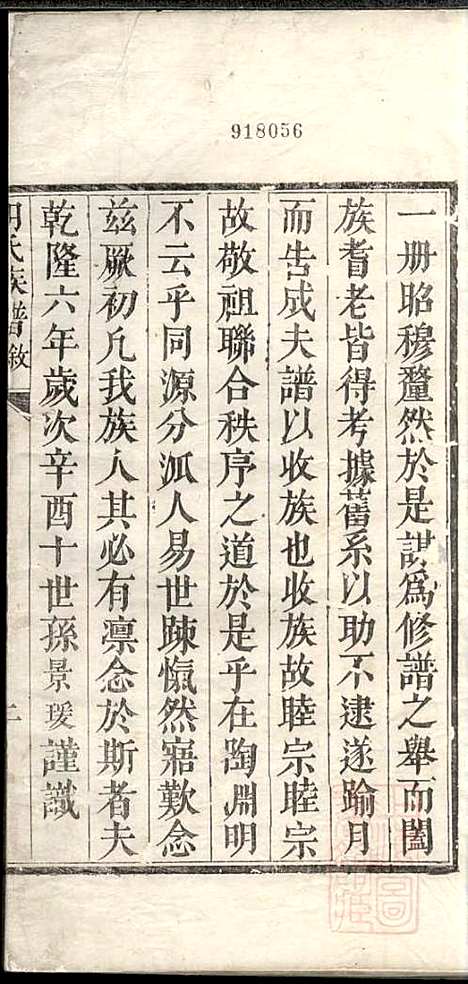 918056
一册昭穆釐然於是謀爲修譜之舉而闔
族耆老皆得考據舊系以助不逮遂踰月
而告成夫譜以收族也收族故睦宗睦宗
故敬祖聯合秩序之道於是乎在陶淵明
不云乎同源分派人易世踈愾然寤歎念
茲厥初凡我族人其必有凛念於斯者夫
乾隆六年歲次辛酉十世孫景瑗謹識
氏族譜敘
二